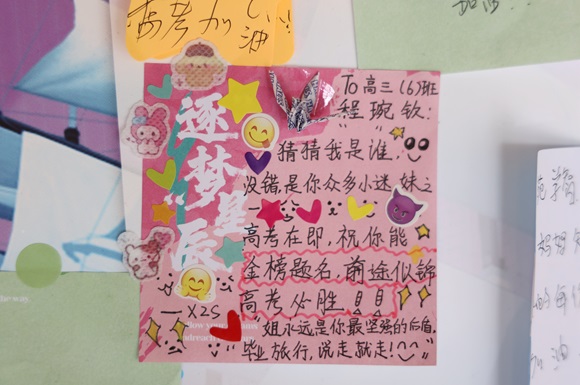 高考加油!!
加油!
To 高三(6)班
程琬钦:
逐梦星辰
猜猜我是谁,
没错,是你众多小迷妹之
一
高考在即,祝你能
金榜题名,前途似锦
高考必胜!!
—X2S
"姐永远是你最坚强的后盾.
毕业旅行,说走就走!
加油